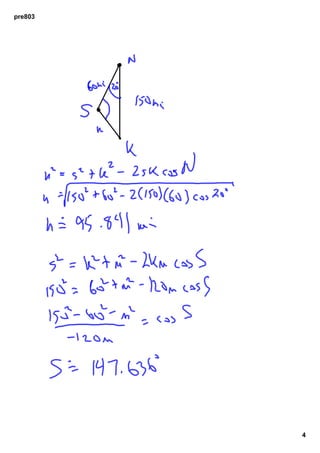 pre803
N
60mi 20°
150mi
S
n
K
n² = s² + k² - 2sk cos N
n = √150² + 60² - 2(150)(60) cos 20°
n ≐ 95.841 mi
s² = k² + n² - 2kn cos S
150² = 60² + n² - 120n cos S
150² - 60² - n² / -120n = cos S
S ≐ 147.636°
4